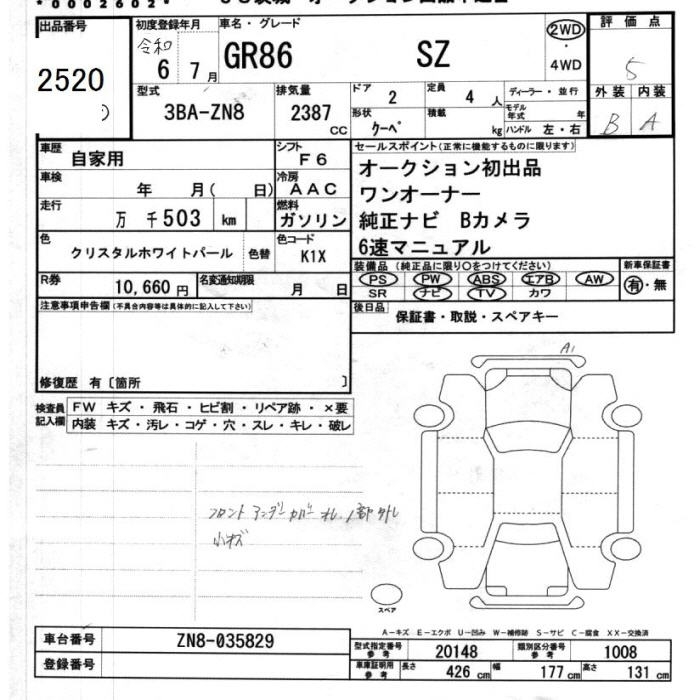 *0002602*
出品番号 初度登録年月 車名・グレード 評価点
2520 令和 6 7月 GR86 SZ 2WD・4WD 5
型式 排気量 ドア 定員 ディーラー・並行 外装 内装
3BA-ZN8 2387 CC 2 4人 モデル年式 年 B A
形状 クーペ 積載 kg ハンドル 左・右
車歴 自家用 シフト F6 セールスポイント(正常に機能するものに限ります)
車検 年 月( 日) 冷房 AAC オークション初出品
走行 万 千503 km 燃料 ガソリン ワンオーナー
純正ナビ Bカメラ
色 クリスタルホワイトパール 色替 色コード K1X 6速マニュアル
装備品(純正品に限り○をつけてください) 新車保証書
R券 10,660円 名変通知期限 月 日 PS PW ABS エアB AW 有・無
SR ナビ TV カワ
注意事項申告欄(不具合内容等は具体的に記入して下さい) 後日品 保証書・取説・スペアキー
修復歴 有〔箇所 〕
A1
検査員記入欄 FW キズ・飛石・ヒビ割・リペア跡・×要
内装 キズ・汚レ・コゲ・穴・スレ・キレ・破レ
フロント アンダーカバー オレ、1部外レ
小キズ
スペア
A-キズ E-エクボ U-凹み W-補修跡 S-サビ C-腐食 XX-交換済
車台番号 ZN8-035829 型式指定番号 参考 20148 類別区分番号 参考 1008
登録番号 車庫証明用 参考 長さ 426 cm 幅 177 cm 高さ 131 cm